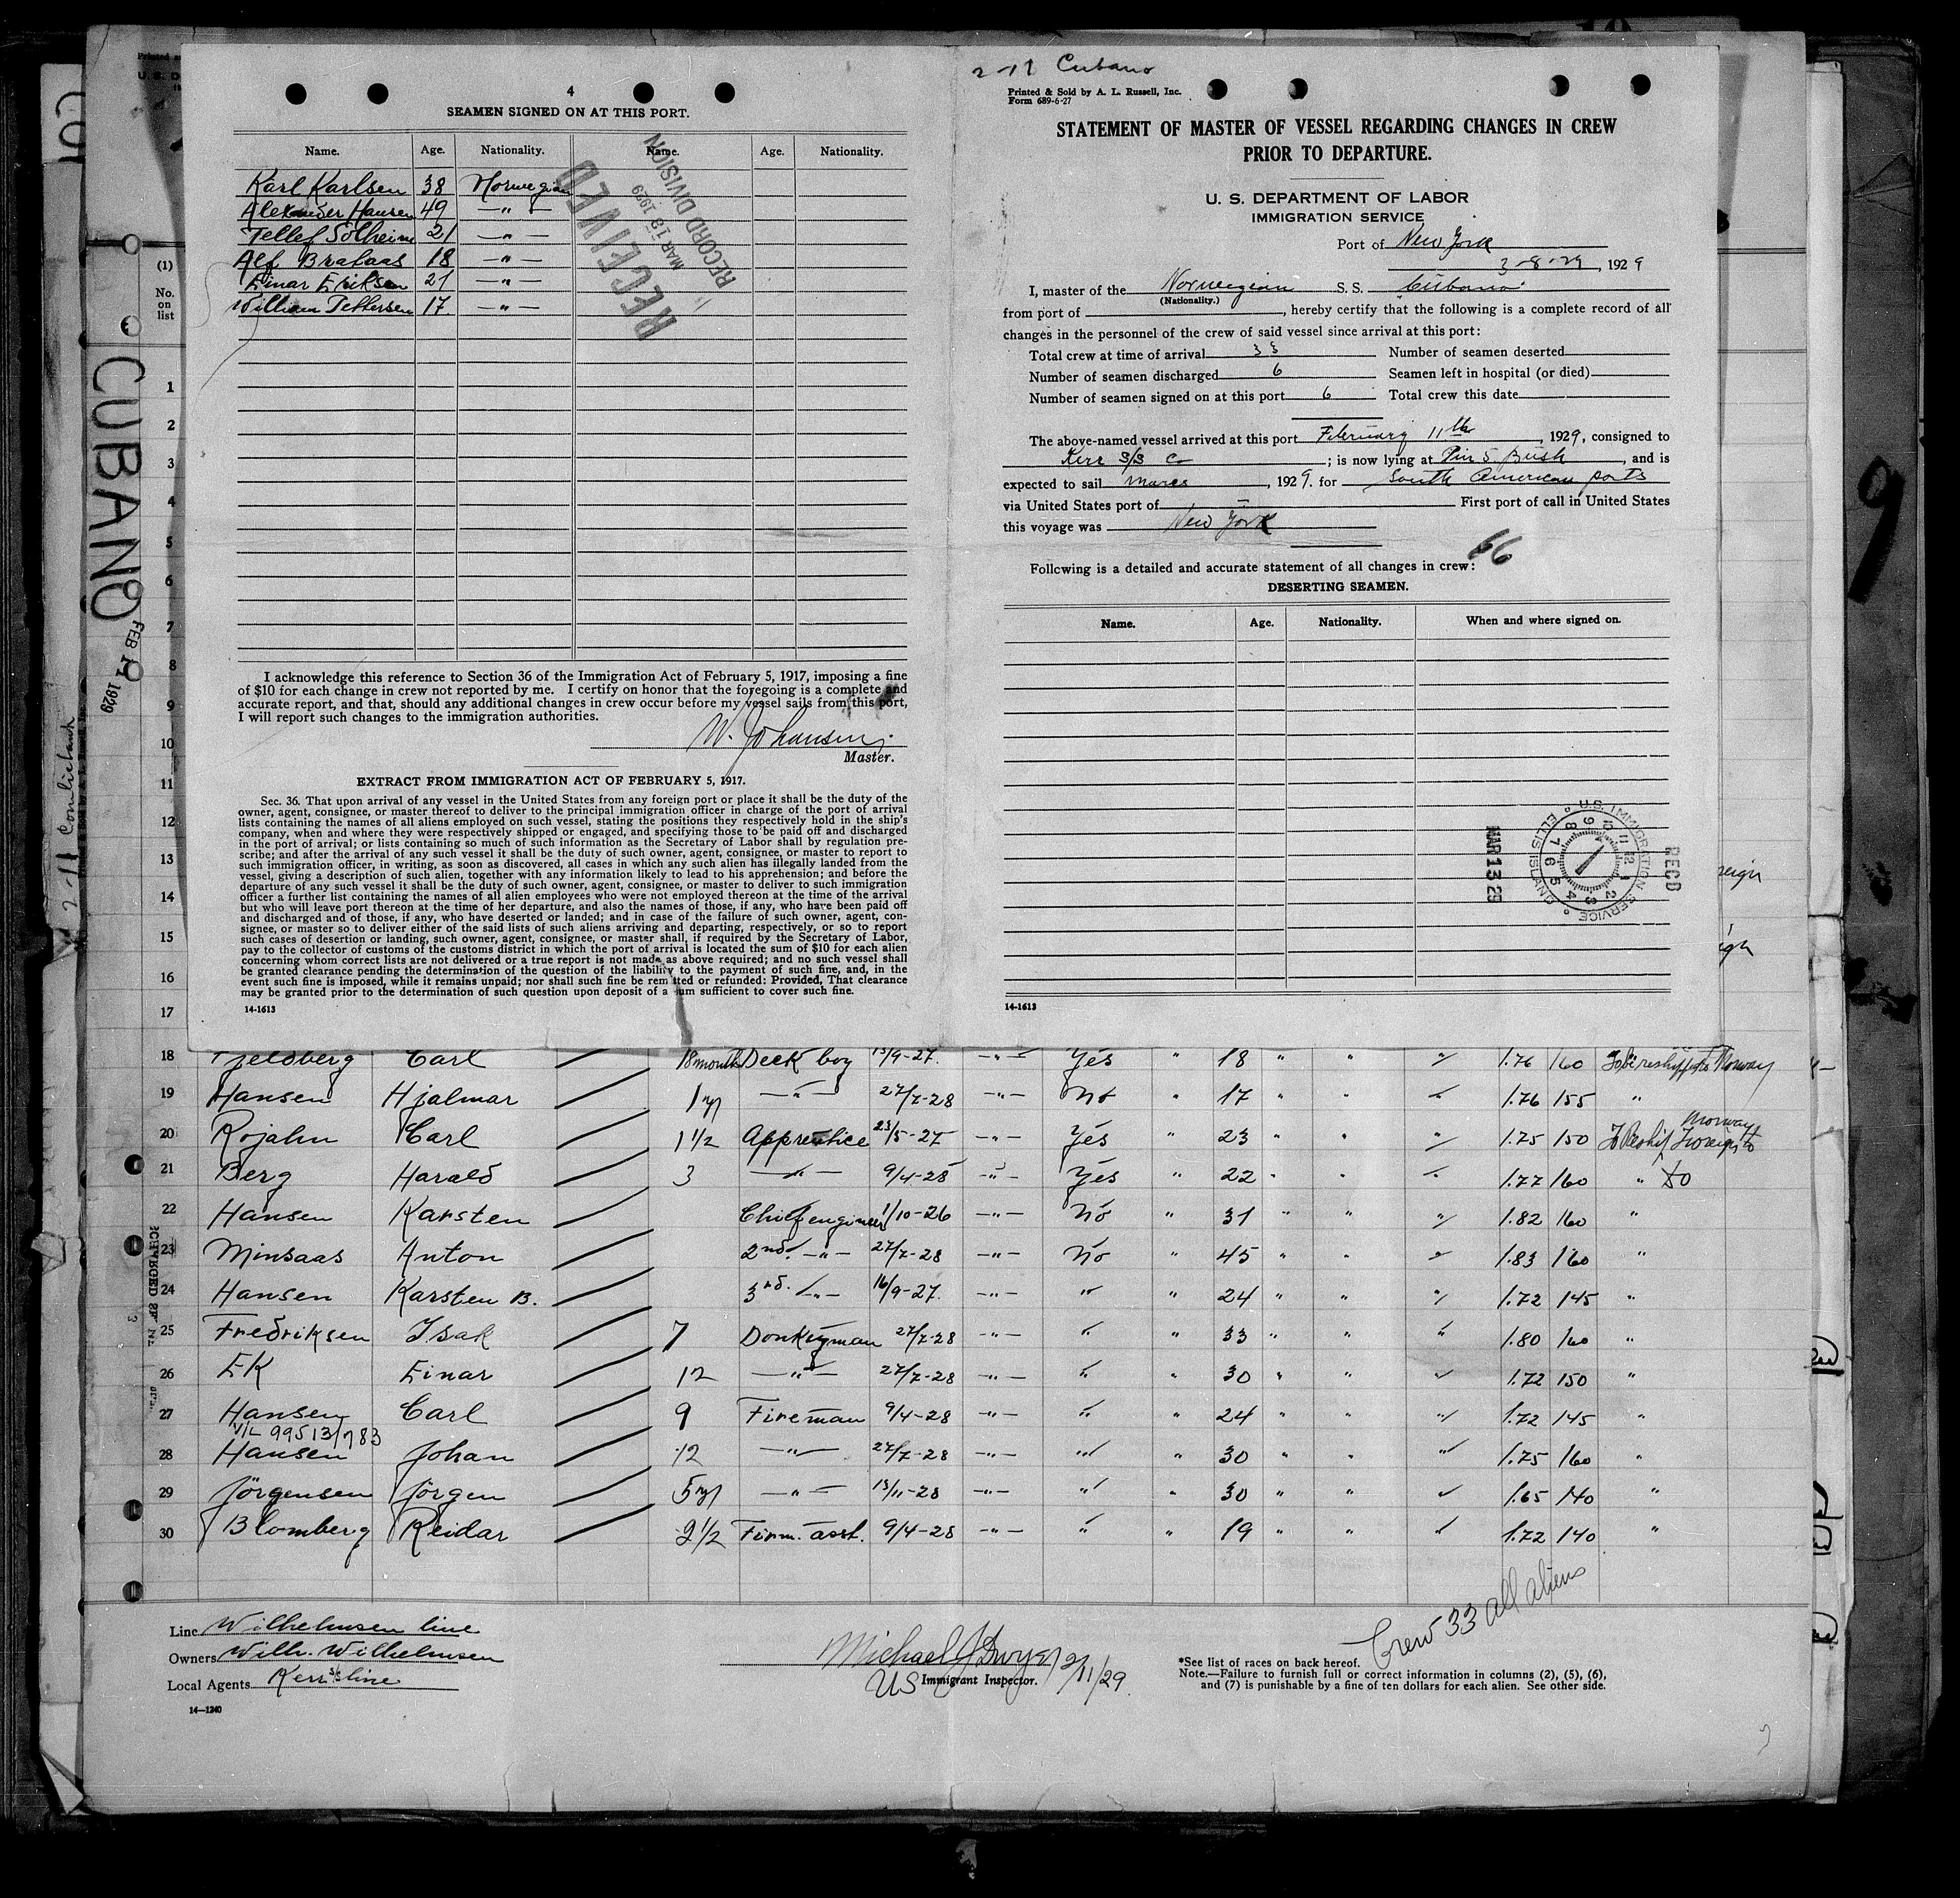 4
SEAMEN SIGNED ON AT THIS PORT.
Name. Age. Nationality. Name. Age. Nationality.
Karl Karlsen 38 Norwegian
Alexander Hansen 49 —"—
Tellef Solheim 21 —"—
Alf Brataas 18 —"—
Einar Eriksen 21 —"—
William Pettersen 17. —"—
RECEIVED
MAR 13 1929
RECORD DIVISION
I acknowledge this reference to Section 36 of the Immigration Act of February 5, 1917, imposing a fine
of $10 for each change in crew not reported by me. I certify on honor that the foregoing is a complete and
accurate report, and that, should any additional changes in crew occur before my vessel sails from this port,
I will report such changes to the immigration authorities.
W. Johansen.
Master.
EXTRACT FROM IMMIGRATION ACT OF FEBRUARY 5, 1917.
Sec. 36. That upon arrival of any vessel in the United States from any foreign port or place it shall be the duty of the
owner, agent, consignee, or master thereof to deliver to the principal immigration officer in charge of the port of arrival
lists containing the names of all aliens employed on such vessel, stating the positions they respectively hold in the ship's
company, when and where they were respectively shipped or engaged, and specifying those to be paid off and discharged
in the port of arrival; or lists containing so much of such information as the Secretary of Labor shall by regulation pre-
scribe; and after the arrival of any such vessel it shall be the duty of such owner, agent, consignee, or master to report to
such immigration officer, in writing, as soon as discovered, all cases in which any such alien has illegally landed from the
vessel, giving a description of such alien, together with any information likely to lead to his apprehension; and before the
departure of any such vessel it shall be the duty of such owner, agent, consignee, or master to deliver to such immigration
officer a further list containing the names of all alien employees who were not employed thereon at the time of the arrival
but who will leave port thereon at the time of her departure, and also the names of those, if any, who have been paid off
and discharged and of those, if any, who have deserted or landed; and in case of the failure of such owner, agent, con-
signee, or master so to deliver either of the said lists of such aliens arriving and departing, respectively, or so to report
such cases of desertion or landing, such owner, agent, consignee, or master shall, if required by the Secretary of Labor,
pay to the collector of customs of the customs district in which the port of arrival is located the sum of $10 for each alien
concerning whom correct lists are not delivered or a true report is not made as above required; and no such vessel shall
be granted clearance pending the determination of the question of the liability to the payment of such fine, and, in the
event such fine is imposed, while it remains unpaid; nor shall such fine be remitted or refunded: Provided, That clearance
may be granted prior to the determination of such question upon deposit of a sum sufficient to cover such fine.
14-1613
Cubano
Printed & Sold by A. L. Russell, Inc.
Form 689-6-27
STATEMENT OF MASTER OF VESSEL REGARDING CHANGES IN CREW
PRIOR TO DEPARTURE.
U. S. DEPARTMENT OF LABOR
IMMIGRATION SERVICE
Port of New York
3-8-29, 1929
I, master of the Norwegian S. S. Cubano
(Nationality.)
from port of , hereby certify that the following is a complete record of all
changes in the personnel of the crew of said vessel since arrival at this port:
Total crew at time of arrival 33 Number of seamen deserted
Number of seamen discharged 6 Seamen left in hospital (or died)
Number of seamen signed on at this port 6 Total crew this date
The above-named vessel arrived at this port February 11th, 1929, consigned to
Kerr S/S Co ; is now lying at Pier 5 Bush , and is
expected to sail , 1929. for South American ports
via United States port of — First port of call in United States
this voyage was New York
66
Following is a detailed and accurate statement of all changes in crew:
DESERTING SEAMEN.
Name. Age. Nationality. When and where signed on.
MAR 13 29
U.S. IMMIGRATION SERVICE ELLIS ISLAND
RECD
14-1613
9
CUBANO
FEB 11 1929
(1)
No.
on
list
1
2
3
4
5
6
7
8
9
10
11
12
13
14
15
16
17
18 Fjeldberg Carl 18 month Deck boy 13/9-27. —"— Yes " 18 " " " 1.76 160 To be reshipped to Norway
19 Hansen Hjalmar 1 y —"— 27/7-28 —"— No " 17 " " " 1.76 155 "
20 Rojahn Carl 1 1/2 Apprentice 23/5-27 —"— Yes " 23 " " " 1.75 150 To Reship Foreign to Norway
21 Berg Harald 3 —"— 9/4-28 —"— Yes " 22 " " " 1.77 160 " to
22 Hansen Karsten Chief engineer 1/10-26 —"— No " 31 " " " 1.82 160 "
23 Minsaas Anton 2nd. —"— 27/7-28 —"— No " 45 " " " 1.83 160 "
24 Hansen Karsten B. 3rd. —"— 16/9-27. —"— " " 24 " " " 1.72 145 "
25 Fredriksen Isak 7 Donkeyman 27/7-28 —"— " " 33 " " " 1.80 160 "
26 EK Einar 12 —"— 27/7-28 —"— " " 30 " " " 1.72 150 "
27 Hansen Carl 9 Fireman 9/4-28 —"— " " 24 " " " 1.72 145 "
V/L 99513/783
28 Hansen Johan 12 —"— 27/7-28 —"— " " 30 " " " 1.75 160 "
29 Jörgensen Jörgen 5 y —"— 13/11-28 —"— " " 30 " " " 1.65 140 "
30 Blomberg Reidar 2 1/2 Firm. asst. 9/4-28 —"— " " 19 " " " 1.72 140 "
Crew 33 all aliens
Line Wilhelmsen line
Owners Wilh. Wilhelmsen
Local Agents Kerr S/S line
14—1240
Michael J Dwyer 2/11/29.
US Immigrant Inspector.
*See list of races on back hereof.
Note.—Failure to furnish full or correct information in columns (2), (5), (6),
and (7) is punishable by a fine of ten dollars for each alien. See other side.